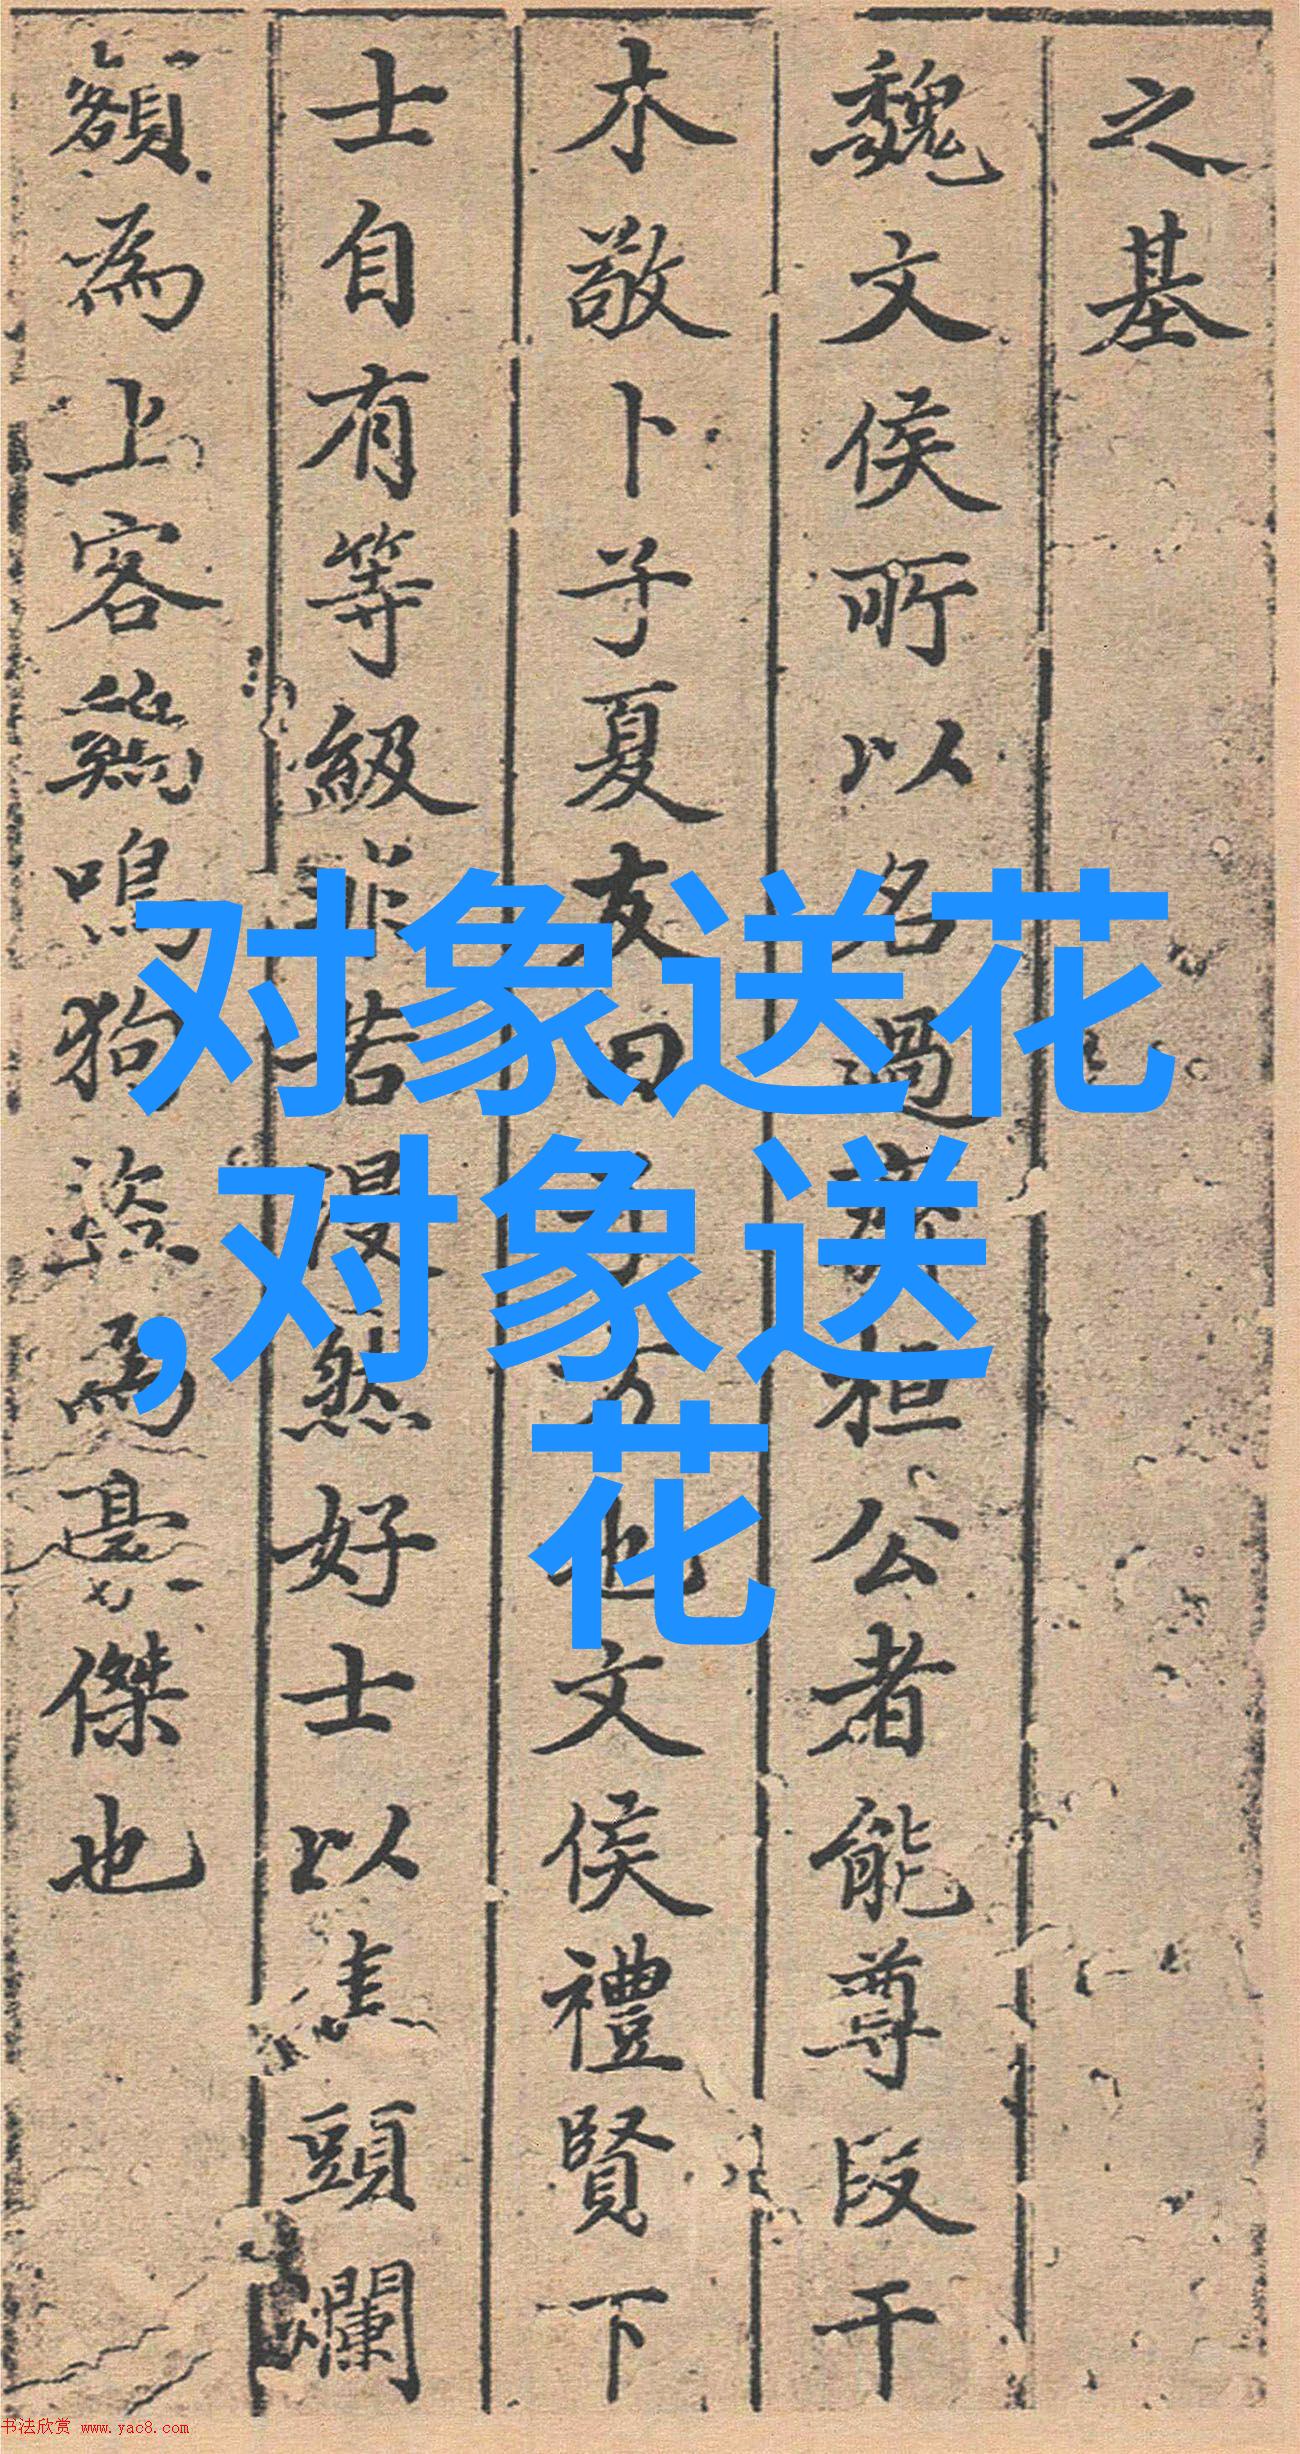 之基
魏文侯所以名過齊桓公者能尊段干
木敬卜子夏友田子方也文侯禮賢下
士自有等級非若漫然好士以焦頭爛
額為上客鷄鳴狗盜為豪傑也
对象送花
,对象送
花
书法欣赏 www.yac8.com